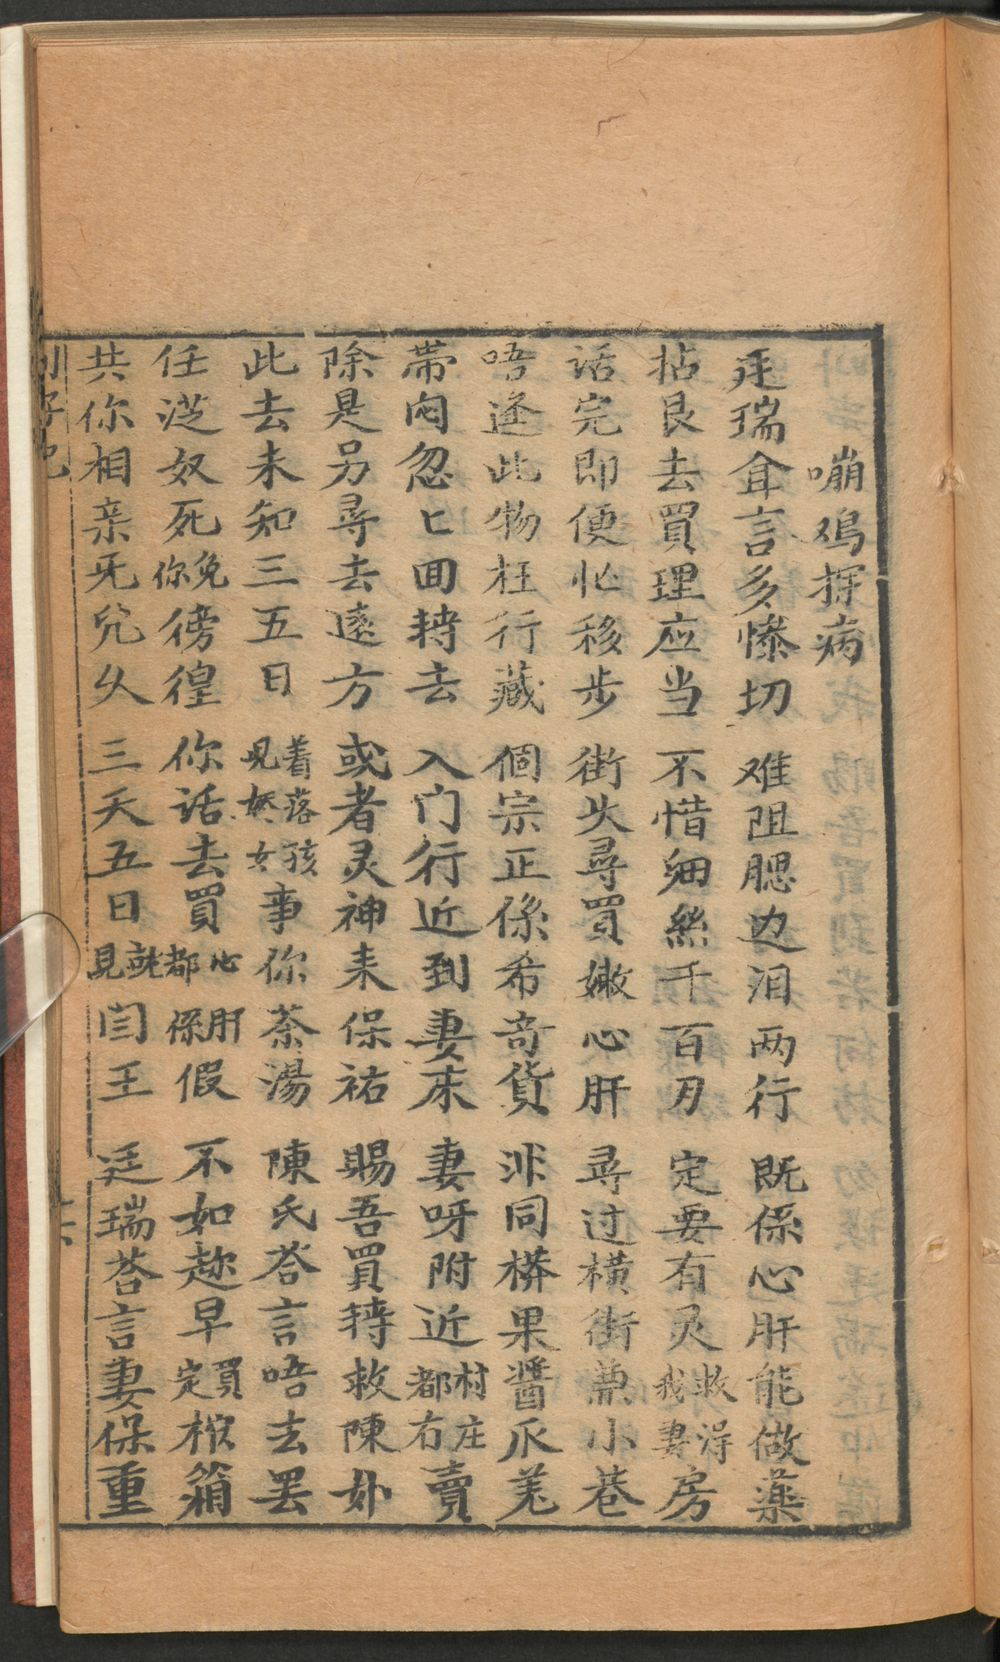 嘣鸡探病
廷瑞耷言多惨切 难阻腮边泪两行 既係心肝能做藥
拈艮去買理应当 不惜细絲千百刃 定要有灵救得我妻房
话完即便忙移步 街头尋買嫩心肝 尋过横街兼小巷
唔逢此物枉行藏 個宗正係希奇貨 非同樣果醬瓜羌
帯闷忽匕囬轉去 入门行近到妻床 妻呀附近村庄都冇賣
除是另尋去遠方 或者灵神来保祐 賜吾買轉救陳娘
此去未知三五日 着落孩見娇女事你茶湯 陳氏荅言唔去罢
任從奴死免你徬徨 你话去買心肝都係假 不如趂早買定棺箱
共你相亲死免久 三天五日就見闫王 廷瑞荅言妻保重